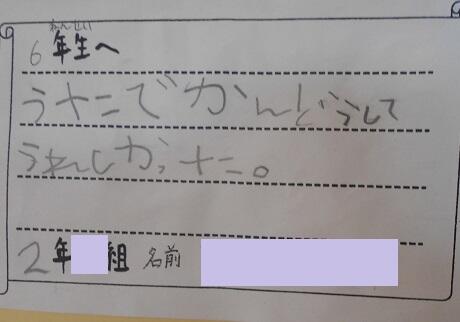 ねんせい
6年生へ
うたでかんどうして
うれしかった。
2年 組 名前